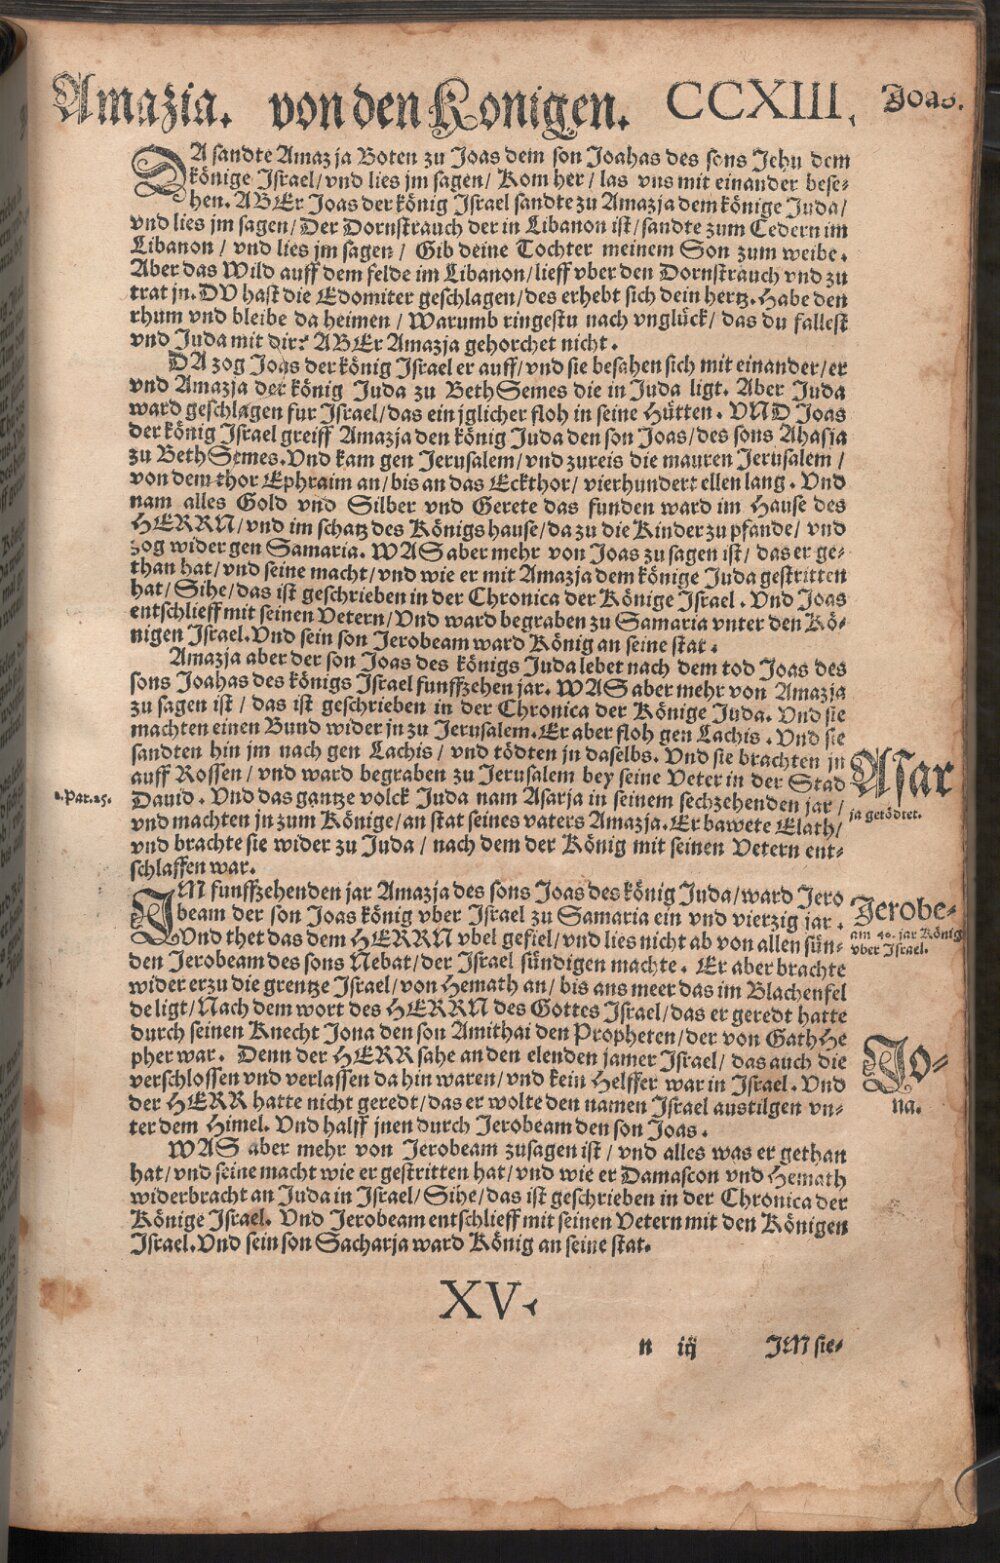 Amazia. von den Konigen. CCXIII. Joas.
DA sandte Amazja Boten zu Joas dem son Joahas des sons Jehu dem
könige Israel/vnd lies jm sagen/ Kom her/las vns mit einander bese-
hen. ABEr Joas der könig Israel sandte zu Amazja dem könige Juda/
vnd lies jm sagen/Der Dornstrauch der in Libanon ist/sandte zum Cedern im
Libanon/ vnd lies jm sagen/ Gib deine Tochter meinem Son zum weibe.
Aber das Wild auff dem felde im Libanon/lieff vber den Dornstrauch vnd zu
trat jn. DV hast die Edomiter geschlagen/des erhebt sich dein hertz. Habe den
rhum vnd bleibe da heimen/Warumb ringestu nach vnglück/das du fallest
vnd Juda mit dir? ABEr Amazja gehorchet nicht.
DA zog Joas der könig Israel er auff/vnd sie besahen sich mit einander/er
vnd Amazja der könig Juda zu BethSemes die in Juda ligt. Aber Juda
ward geschlagen fur Israel/das ein jglicher floh in seine Hütten. VND Joas
der könig Israel greiff Amazja den könig Juda den son Joas/des sons Ahasia
zu BethSemes. Vnd kam gen Jerusalem/vnd zureis die mauren Jerusalem/
von dem thor Ephraim an/bis an das Eckthor/vierhundert ellen lang. Vnd
nam alles Gold vnd Silber vnd Gerete das funden ward im Hause des
HERRN/vnd im schatz des Königs hause/da zu die Kinder zu pfande/ vnd
zog wider gen Samaria. WAS aber mehr von Joas zu sagen ist/das er ge-
than hat/vnd seine macht/vnd wie er mit Amazja dem könige Juda gestritten
hat/Sihe/das ist geschrieben in der Chronica der Könige Israel. Vnd Joas
entschlieff mit seinen Vetern/Vnd ward begraben zu Samaria vnter den Kö-
nigen Israel. Vnd sein son Jerobeam ward König an seine stat.
Amazja aber der son Joas des königs Juda lebet nach dem tod Joas des
sons Joahas des königs Israel funffzehen jar. WAS aber mehr von Amazja
zu sagen ist/ das ist geschrieben in der Chronica der Könige Juda. Vnd sie
machten einen Bund wider jn zu Jerusalem. Er aber floh gen Lachis. Vnd sie
sandten hin jm nach gen Lachis/ vnd tödten jn daselbs. Vnd sie brachten jn
auff Rossen/vnd ward begraben zu Jerusalem bey seine Veter in der Stad
Dauid. Vnd das gantze volck Juda nam Asarja in seinem sechzehenden jar/
vnd machten jn zum Könige/an stat seines vaters Amazja. Er bawete Elath/
vnd brachte sie wider zu Juda/ nach dem der König mit seinen Vetern ent-
schlaffen war.
2.Par.25.
Asar
ja getödtet.
IM funffzehenden jar Amazja des sons Joas des könig Juda/ward Jero
beam der son Joas könig vber Israel zu Samaria ein vnd vierzig jar.
Vnd thet das dem HERRN vbel gefiel/vnd lies nicht ab von allen sün-
den Jerobeam des sons Nebat/der Israel sündigen machte. Er aber brachte
wider erzu die grentze Israel/von Hemath an/ bis ans meer das im Blachenfel
de ligt/Nach dem wort des HERRN des Gottes Israel/das er geredt hatte
durch seinen Knecht Jona den son Amithai den Propheten/der von GathHe
pher war. Denn der HERR sahe an den elenden jamer Israel/das auch die
verschlossen vnd verlassen da hin waren/vnd kein Helffer war in Israel. Vnd
der HERR hatte nicht geredt/das er wolte den namen Israel austilgen vn-
ter dem Himel. Vnd halff jnen durch Jerobeam den son Joas.
Jerobe-
am 40. jar König
vber Israel.
Jo-
na.
WAS aber mehr von Jerobeam zusagen ist/ vnd alles was er gethan
hat/vnd seine macht wie er gestritten hat/vnd wie er Damascon vnd Hemath
widerbracht an Juda in Israel/Sihe/das ist geschrieben in der Chronica der
Könige Israel. Vnd Jerobeam entschlieff mit seinen Vetern mit den Königen
Israel. Vnd sein son Sacharja ward König an seine stat.
XV.
n iij IM sie-